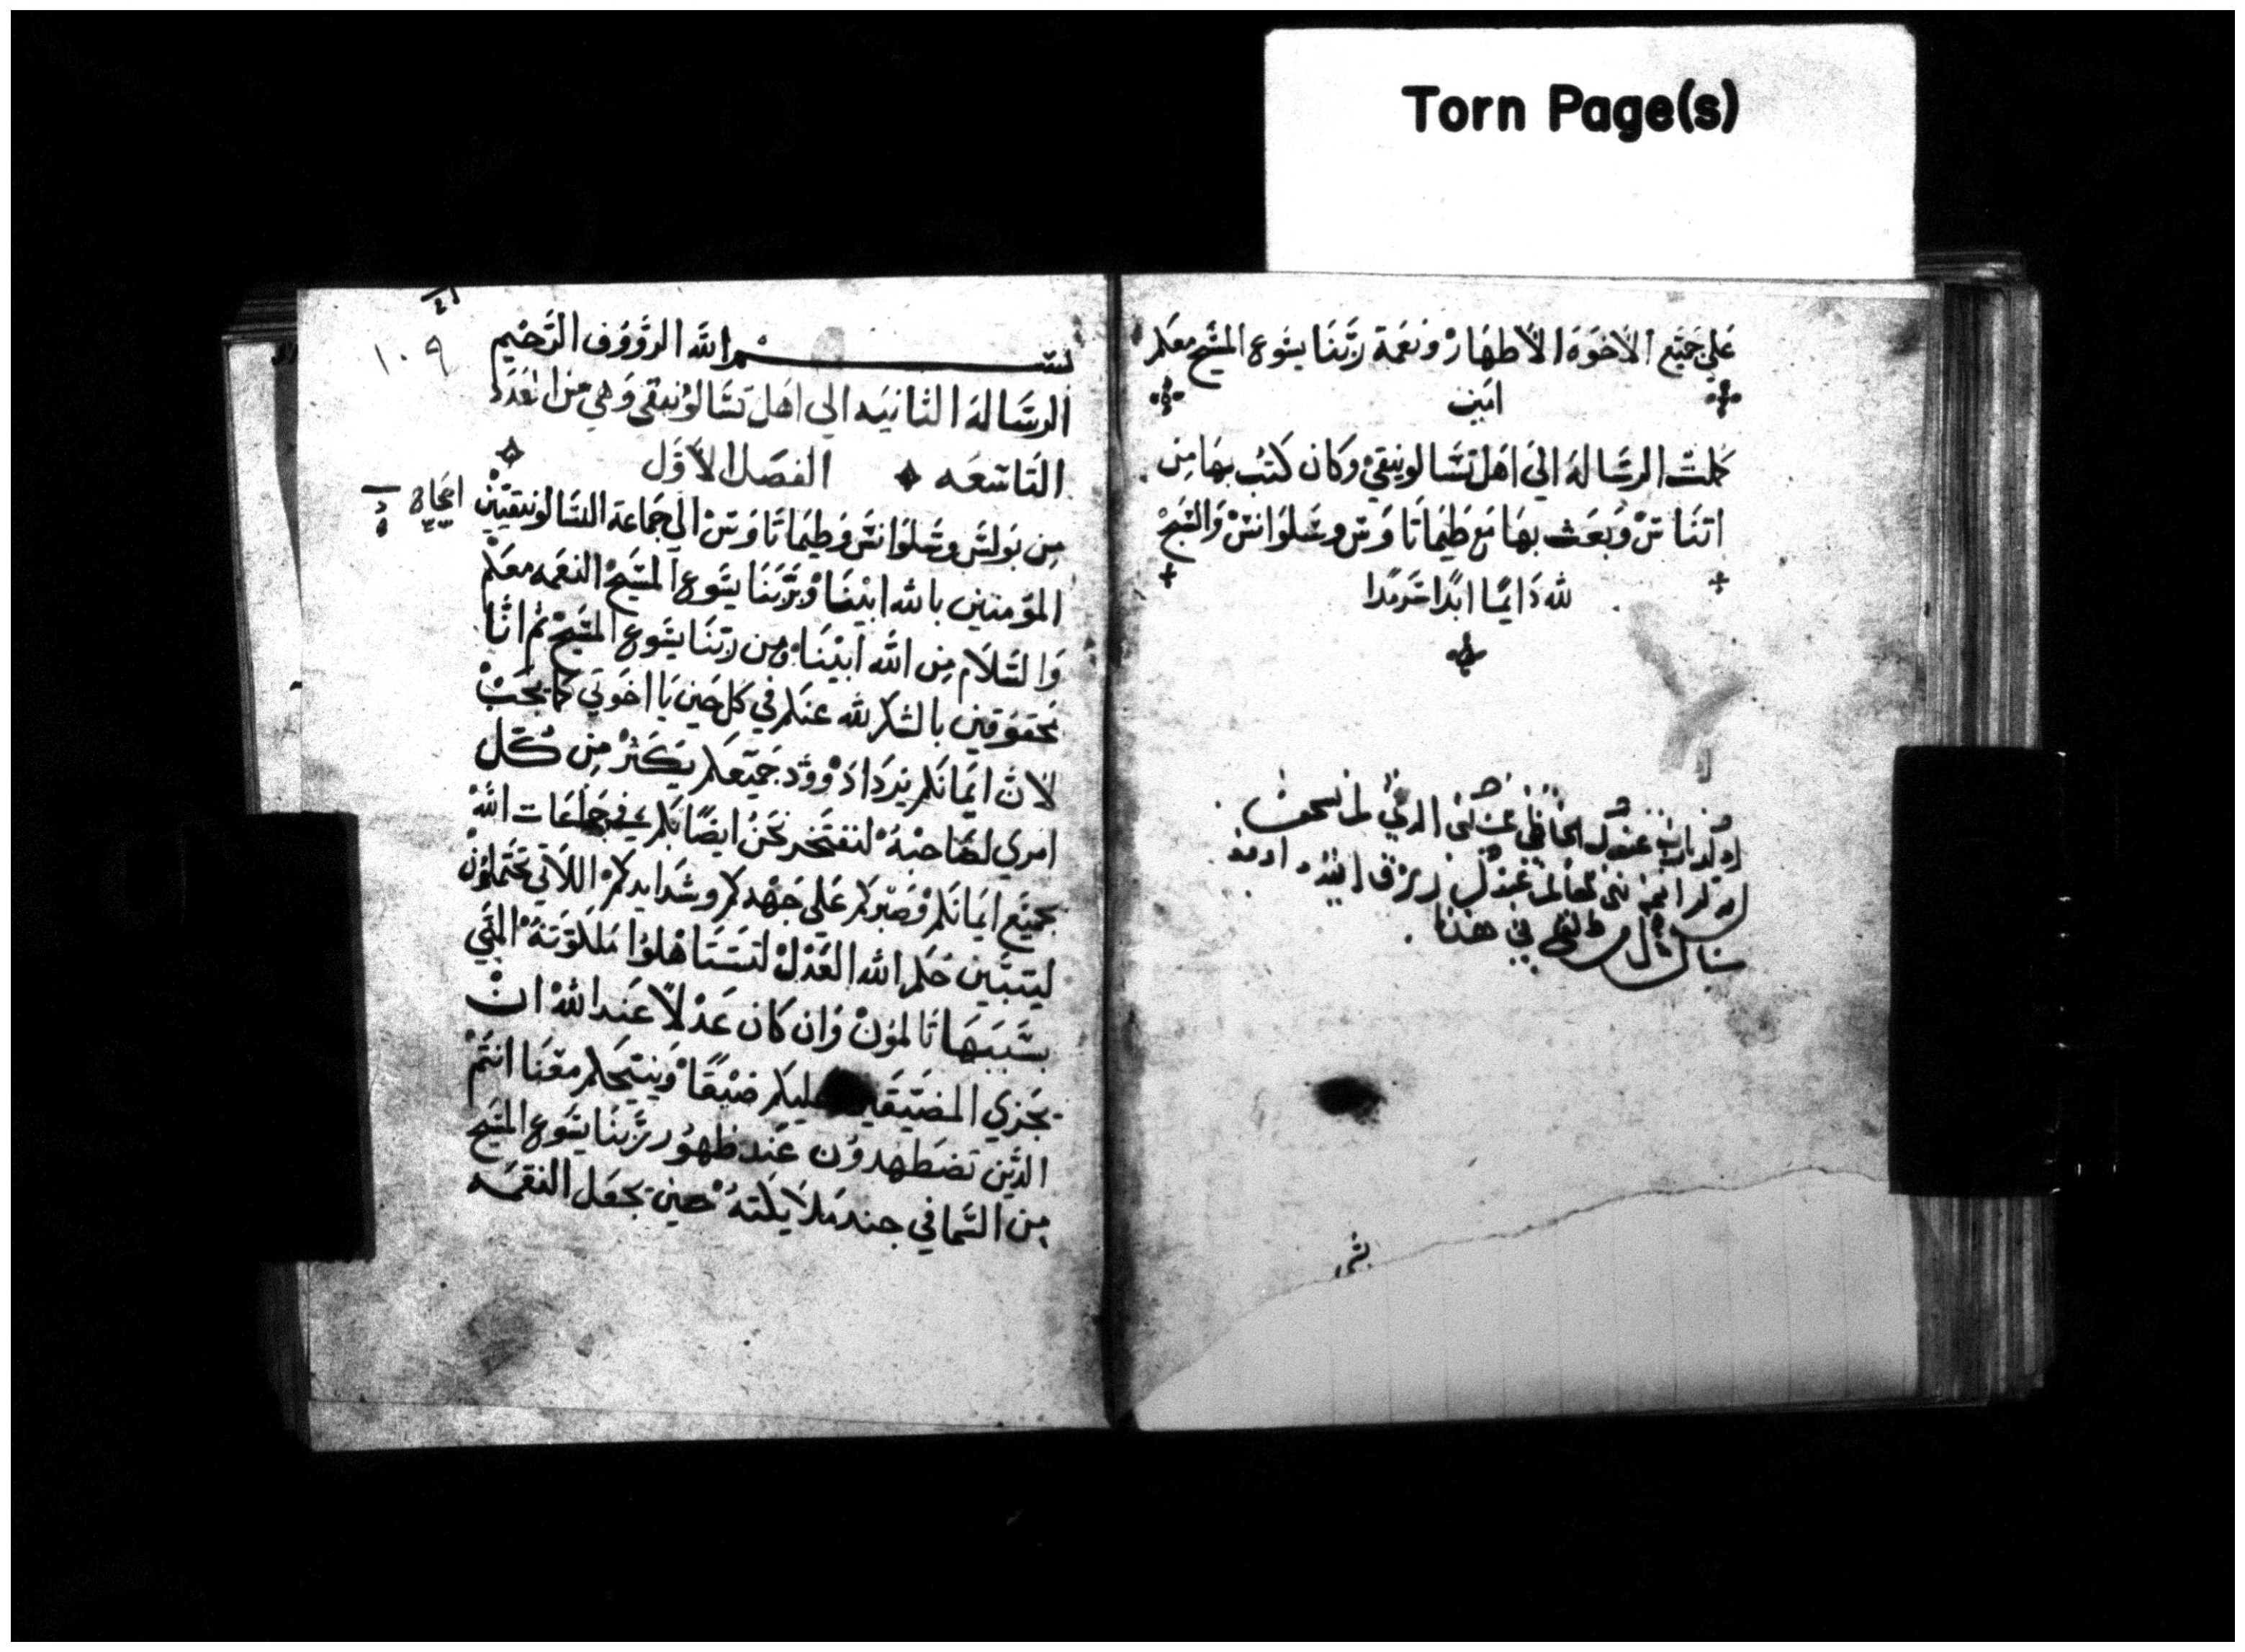 Torn Page(s)
علي جميع الاخوة الاطهار ونعمة ربنا يسوع المسيح معكم
امين
كملت الرساله الي اهل تسالونيقي وكان كتب بها من
اتناس وبعث بها مع طيماتاوس وسلوانس والسبح
لله دايما ابدا سرمدا
في هذا
بسم الله الرووف الرحيم
الرساله الثانيه الي اهل تسالونيقي وهي من العدد
التاسعه الفصل الاول
١٠٩
من بولس وسلوانس وطيماتاوس الي جماعة التسالونيقيين
المومنين بالله ابينا وبربنا يسوع المسيح النعمه معكم
والسلام من الله ابينا ومن ربنا يسوع المسيح ثم اننا
محقوقين بالشكر لله عنكم في كل حين يا اخوتي كما يجب
لان ايمانكم يزداد وود جميعكم يكثر من كل
امري لصاحبه لنفتخر نحن ايضا بكم في جماعات الله
بجميع ايمانكم وصبركم علي جهدكم وشدايدكم اللاتي تحتملون
ليتبين حكم الله العدل لتستاهلوا ملكوته التي
بسببها تالمون وان كان عدلا عند الله ان
يجزي المضيقين عليكم ضيقا وينيحكم معنا انتم
الذين تضطهدون عند ظهور ربنا يسوع المسيح
من السما في جند ملايكته حين يجعل النقمه